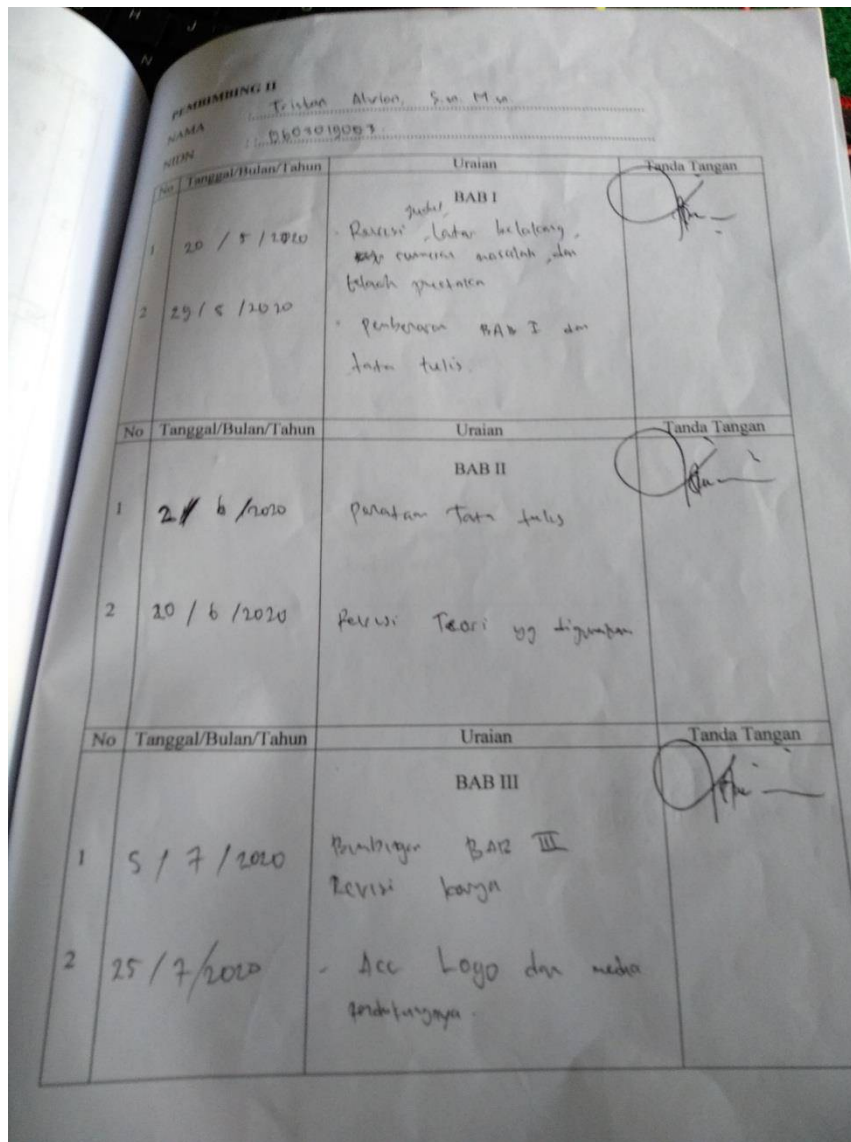 PEMBIMBING II
NAMA : Tristan Alvian, S.Sn. M.Sn.
NIDN :
No Tanggal/Bulan/Tahun Uraian Tanda Tangan
BAB I
judul,
1 20 / 5 / 2020 - Revisi latar belakang,
rumusan masalah, dan
telaah pustaka
2 29 / 5 / 2020
- pembenaran BAB I dan
tata tulis.
No Tanggal/Bulan/Tahun Uraian Tanda Tangan
BAB II
1 2 / 6 /2020 Tata tulis
2 20 / 6 /2020 Revisi Teori yg digunakan
No Tanggal/Bulan/Tahun Uraian Tanda Tangan
BAB III
1 5 / 7 / 2020 Bimbingan BAB III
Revisi karya
2 25 / 7/2020 - Acc Logo dan media
pendukungnya.